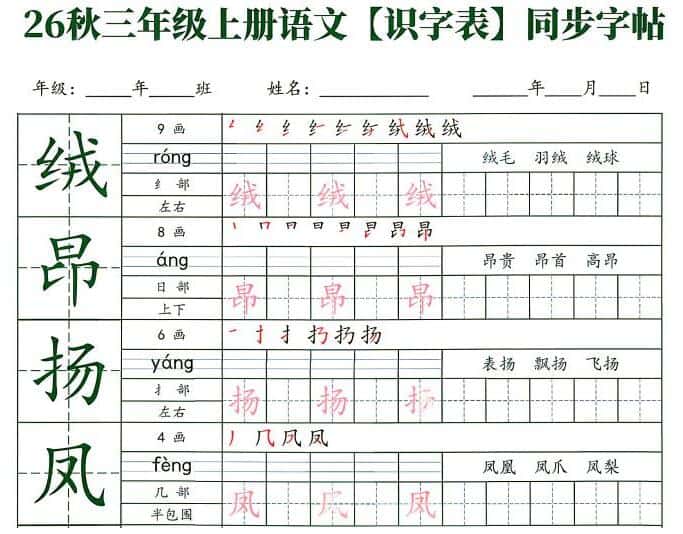 26秋三年级上册语文【识字表】同步字帖
年级：_____年_____班 姓名：____________ ______年____月____日
绒
9 画
róng 绒毛 羽绒 绒球
纟 部 绒 绒 绒
左右
昂
8 画
áng 昂贵 昂首 高昂
日 部 昂 昂 昂
上下
扬
6 画
yáng 表扬 飘扬 飞扬
扌 部 扬 扬 扬
左右
凤
4 画
fèng 凤凰 凤爪 凤梨
几 部 凤 凤 凤
半包围